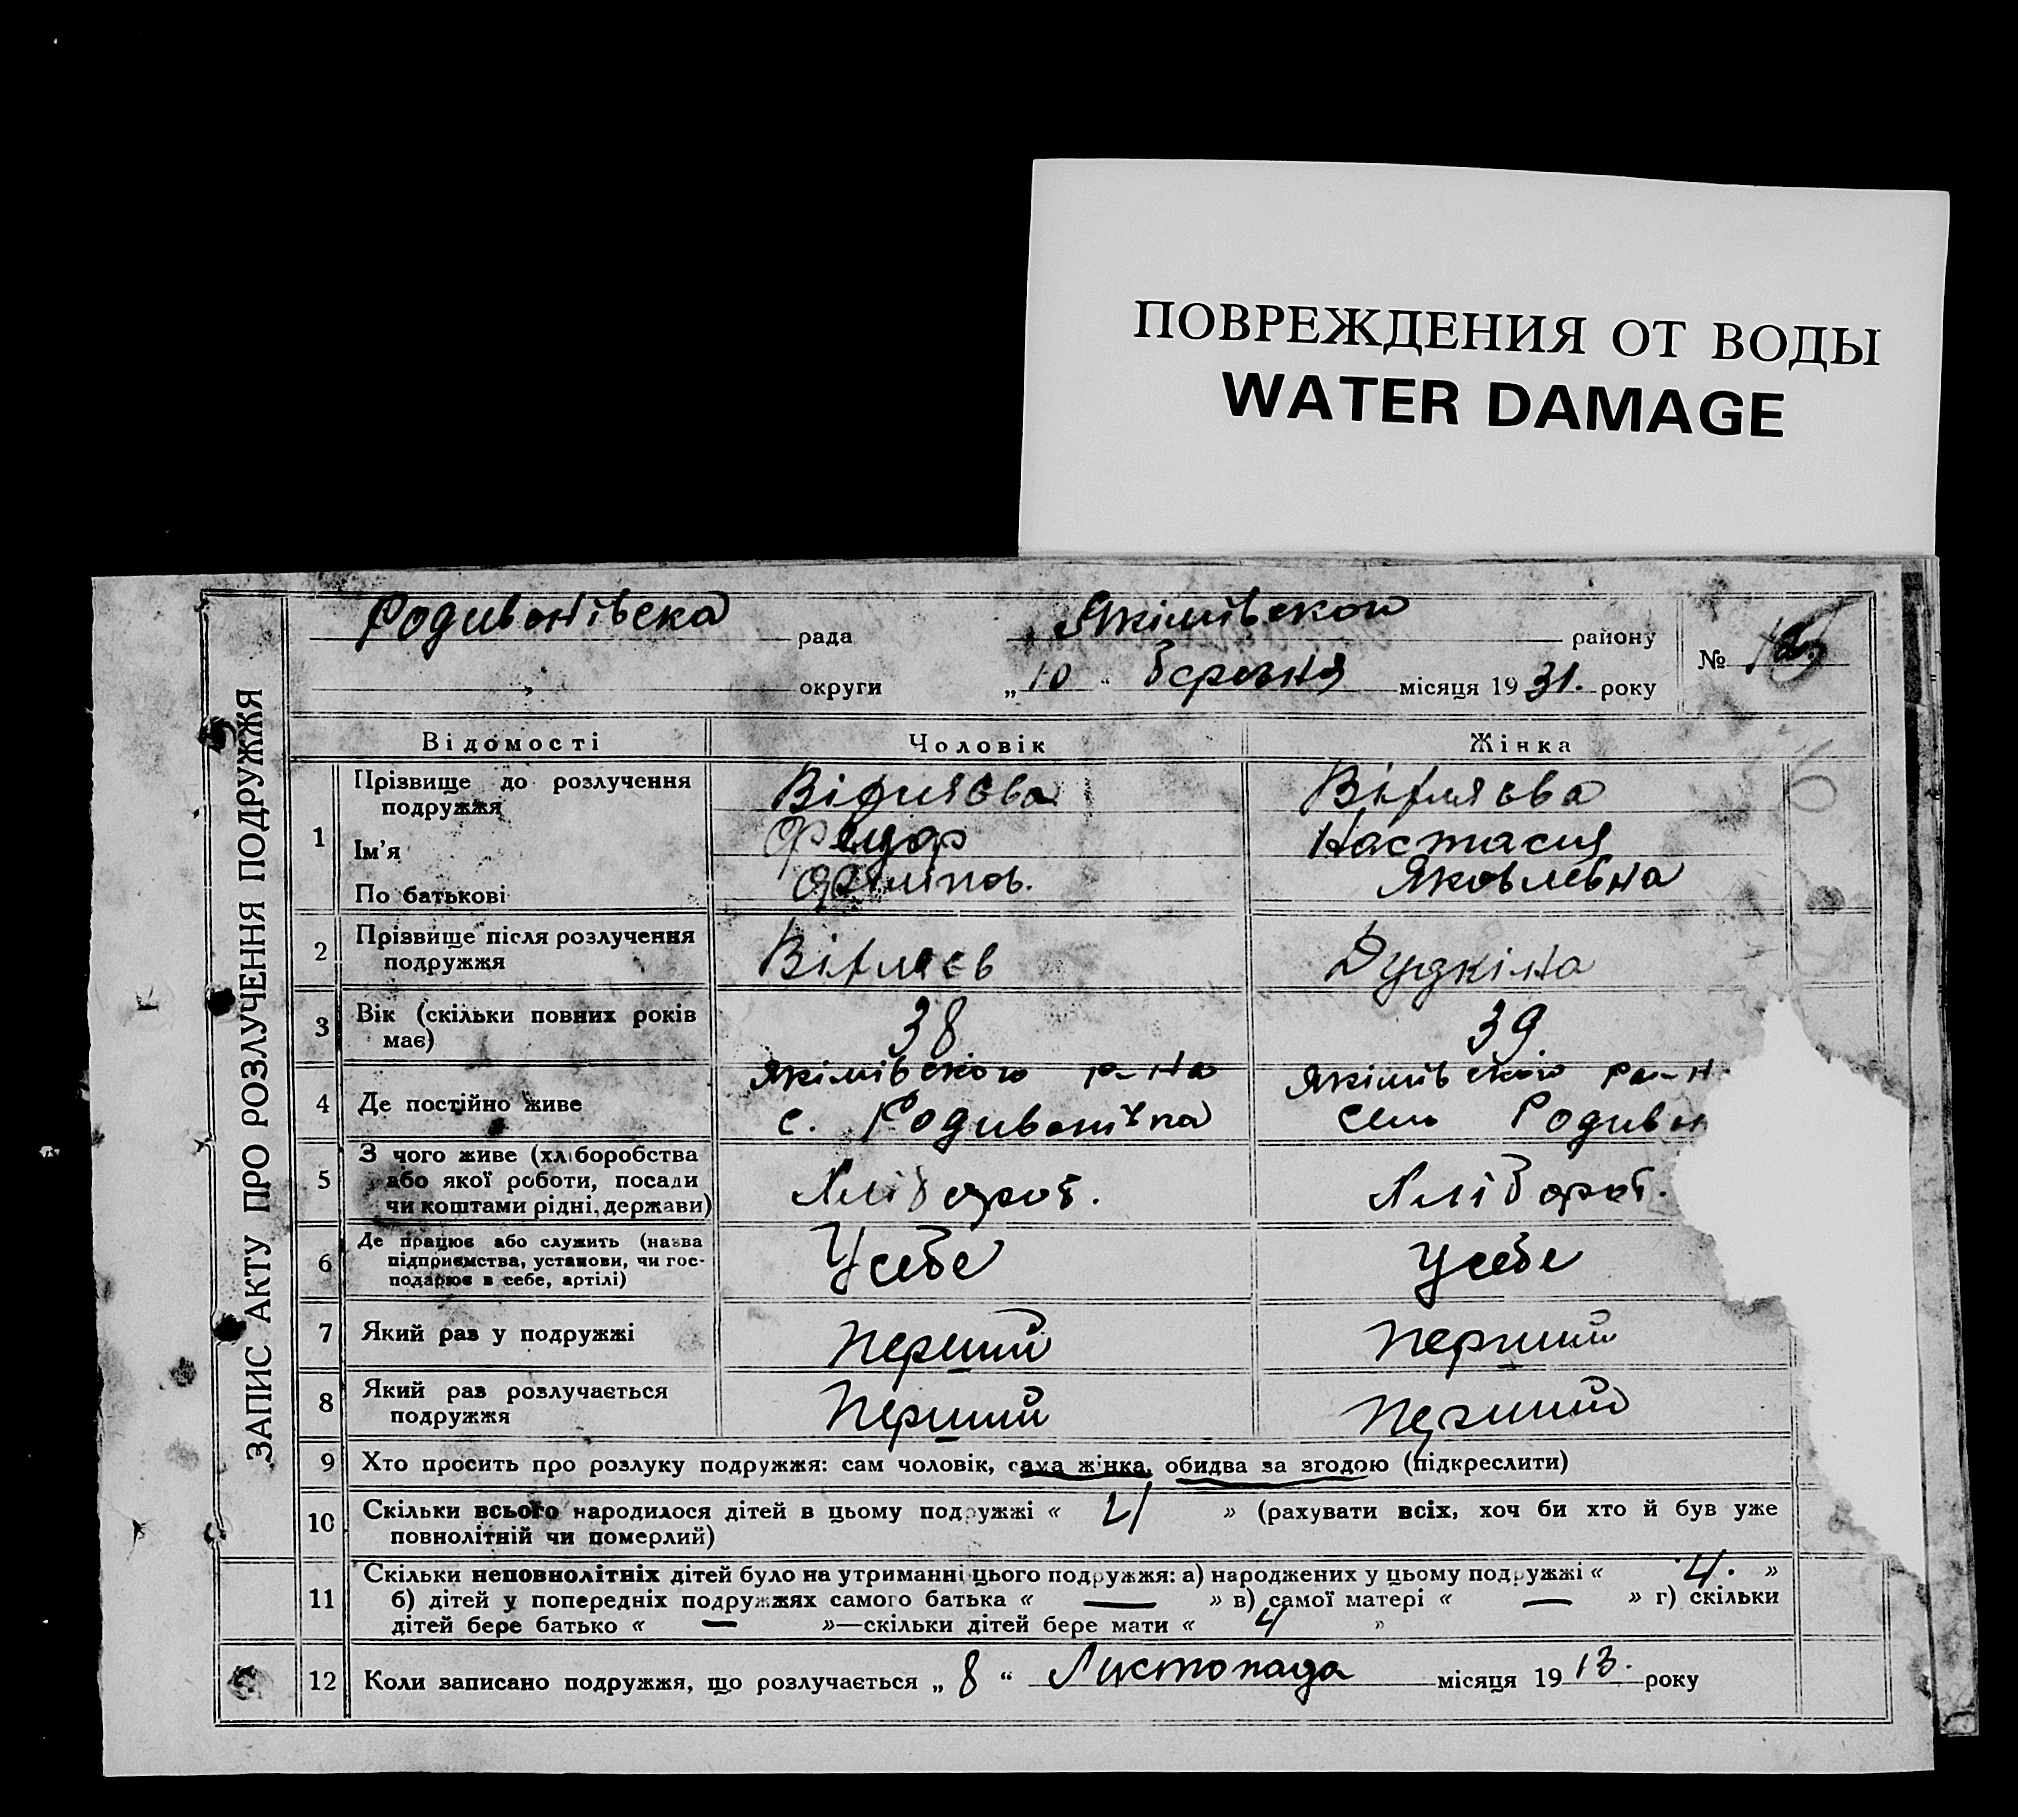 ПОВРЕЖДЕНИЯ ОТ ВОДЫ
WATER DAMAGE
ЗАПИС АКТУ ПРО РОЗЛУЧЕННЯ ПОДРУЖЖЯ
Родивонівска рада Якімівскою району
округи „10“ березня місяця 1931. року
№
Відомості Чоловік Жінка
1 Прізвище до розлучення подружжя
Ім'я Федор Настасия
По батькові Філіпов. Яковлевна
2 Прізвище після розлучення
подружжя Дудкіна
3 Вік (скільки повних років
має) 38 39
Якімівскою р-на Якімівскою
4 Де постійно живе с. Родивонівка село
5 З чого живе (хліборобства
або якої роботи, посади
чи коштами рідні, держави) Хлібороб. Хлібороб.
6 Де працює або служить (назва
підприємства, установи, чи гос-
подарює в себе, артілі) У себе У себе
7 Який раз у подружжі Перший Перший
8 Який раз розлучається
подружжя Перший Перший
9 Хто просить про розлуку подружжя: сам чоловік, сама жінка, обидва за згодою (підкреслити)
10 Скільки всього народилося дітей в цьому подружжі « 4 » (рахувати всіх, хоч би хто й був уже
повнолітній чи померлий)
11 Скільки неповнолітніх дітей було на утриманні цього подружжя: а) народжених у цьому подружжі « 4. »
б) дітей у попередніх подружжях самого батька « — » в) самої матері « — » г) скільки
дітей бере батько « — »—скільки дітей бере мати « 4 »
12 Коли записано подружжя, що розлучається „ 8 “ Листопада місяця 1913. року